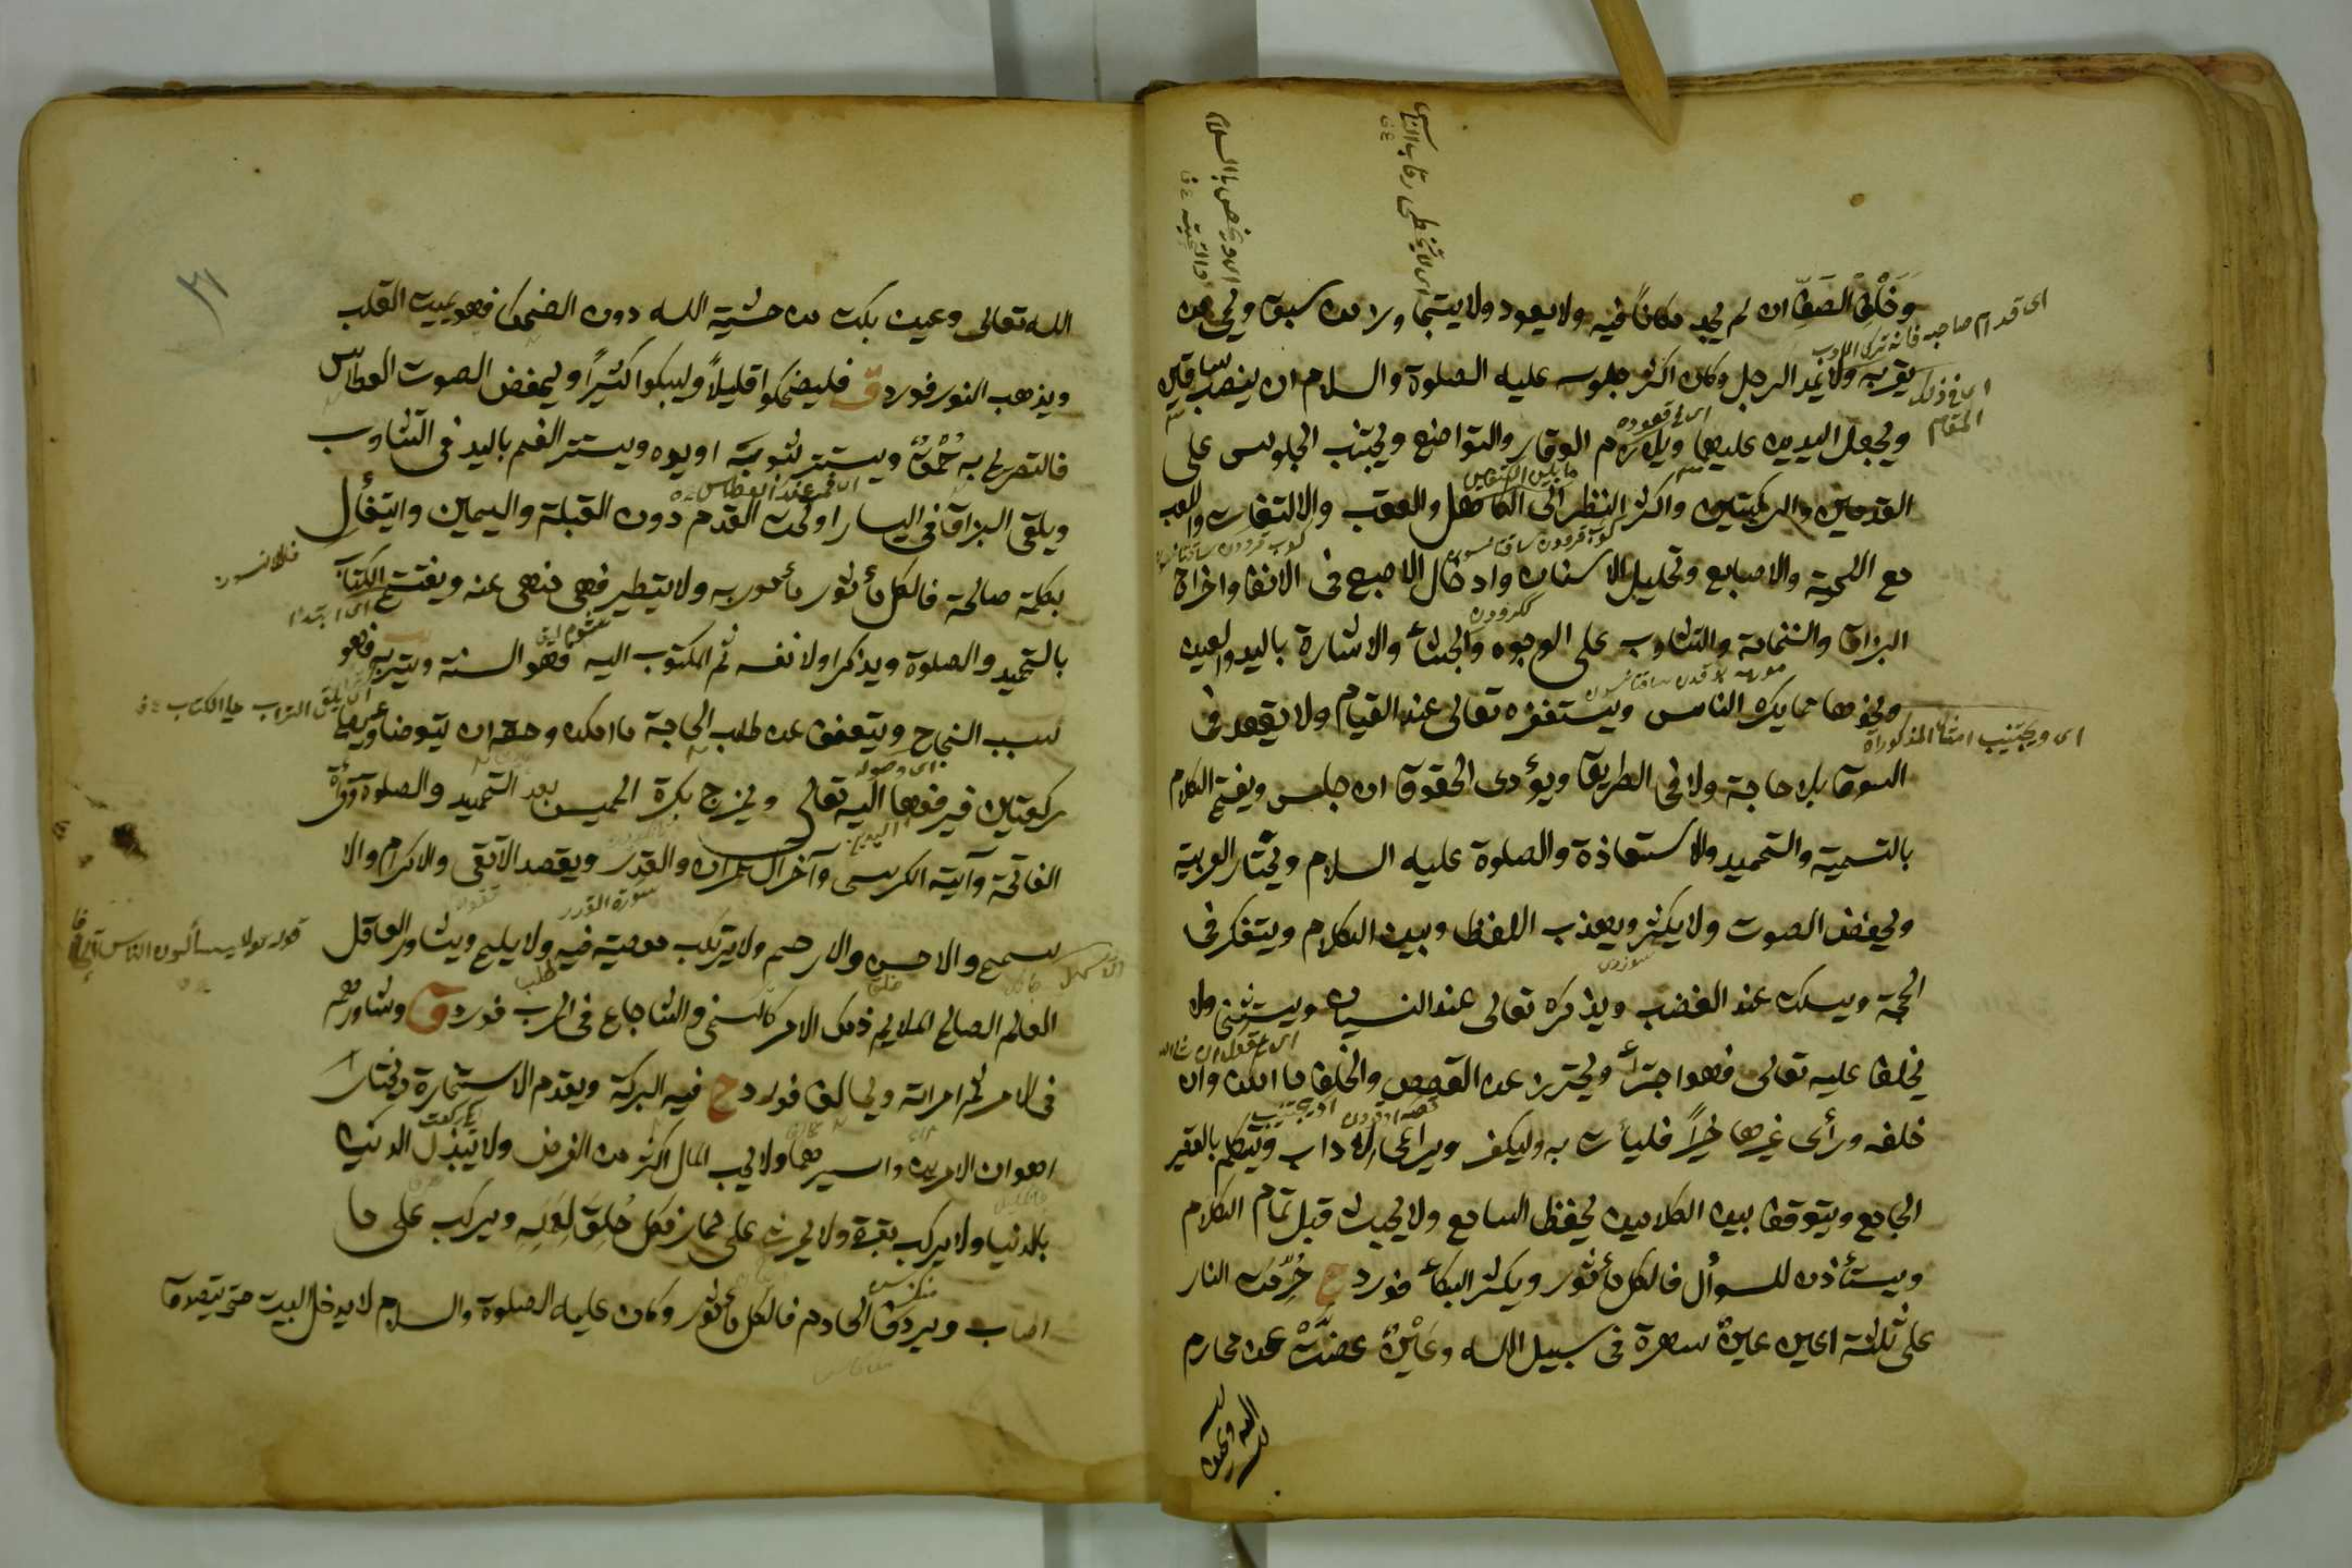 وخلف الصف ان لم يجد مكاناً فيه ولا يعود ولا يتجاوز من سبق ويحيى من
يقربه ولا يمد الرجل وكان اكثر جلوسه عليه الصلوة والسلام ان ينصب ساقين
ويجعل اليدين عليها ويلازم الوقار والتواضع ويجتنب الجلوس على
القدمين والركبتين واكثر النظر الى الكاهل والعقب والالتفات واللعب
مع اللحية والاصابع وتخليل الاسنان وادخال الاصبع فى الانف واخراج
البزاق والنخامة والتثاوب على الوجوه والجشاء والاشارة باليد والعين
ونحوها مما يكره الناس ويستغفره تعالى عند القيام ولا يقعد فى
السوق بلا حاجة ولا فى الطريق ويؤدى الحقوق ان جلس ويفتح الكلام
بالتسمية والتحميد والاستعاذة والصلوة عليه السلام ويختار العربية
ويخفض الصوت ولا يكثر ويعذب اللفظ وبين الكلام ويتفكر فى
الحجة ويسكت عند الغضب ويذكره تعالى عند النسيان ويستثنى ولا
يحلف عليه تعالى فهو اجتراء ويحترز عن القصص والحلف ما امكن وان
حلف ورأى غيرها خيراً فليأت به وليكفر ويراعى الاداب ويتكلم بالفقير
الجامع ويتوقف بين الكلامين ليحفظ السامع ولا يجيب قبل تمام الكلام
ويستأذن للسوأل فالكل مأثور ويكثر البكاء فورد ح حرمت النار
على ثلثة اعين عين سهرة فى سبيل الله وعين غضت عن محارم
اى قدام صاحبه فانه ترك الادب
اى فى ذلك المقام
اى فى قعوده
ما بين الكتفين
اى ويجتنب امثال المذكورات
اى لا يتخطى رقاب الناس
اى ورخص بالسلام والتحية
الله تعالى وعين بكت من خشية الله دون الضحك فهو يميت القلب
ويذهب النور فورد ق فليضحكوا قليلاً وليبكوا كثيراً وليخفض الصوت العطاس
فالتصريح به حمق ويستتر بثوبه او يده ويستر الفم باليد فى التثاوب
ويلقى البزاق فى اليسار او تحت القدم دون القبلة واليمين وايتفأل
بكلمة صالحة فالكل مأثور مأمور به ولا يتطير فهى منهى عنه ويفتتح الكتاب
بالتحميد والصلوة ويذكر اولا نفسه ثم المكتوب اليه فهو السنة ويتربه فهو
سبب النجاح ويتعفف عن طلب الحاجة ما امكن وحقه ان يتوضأ ويصلى
ركعتين فيرفعها اليه تعالى ويخرج بكرة الخميس بعد التحميد والصلوة وقرأة
الفاتحة وآية الكرسى وآخر آل عمران والقدر ويقصد الاتقى والاكرام والا
سمح والاحسن والارحم ولا يرتكب معصية فيه ولا يلح ويشاور العاقل
العالم الصالح الملايم ذلك الامر كالسخى والشجاع فى الحرب فورد ق وشاورهم
فى الامر ثم امراته ويخالف فورد ح فيه البركة ويقدم الاستخارة ويختار
اهوان الامرين وايسرهما ولا يحب المال اكثر من الفرض ولا يبذل الدين
بالدنيا ولا يركب بقرة ولا يحرث على حمار فكل خلق لعمله ويركب على ما
اصاب ويردف الخادم فالكل مأثور وكان عليه الصلوة والسلام لا يدخل البيت حتى يتصدق
اى ابتداء
سورة القدر
قوله تعالى لا يسألون الناس الحافا